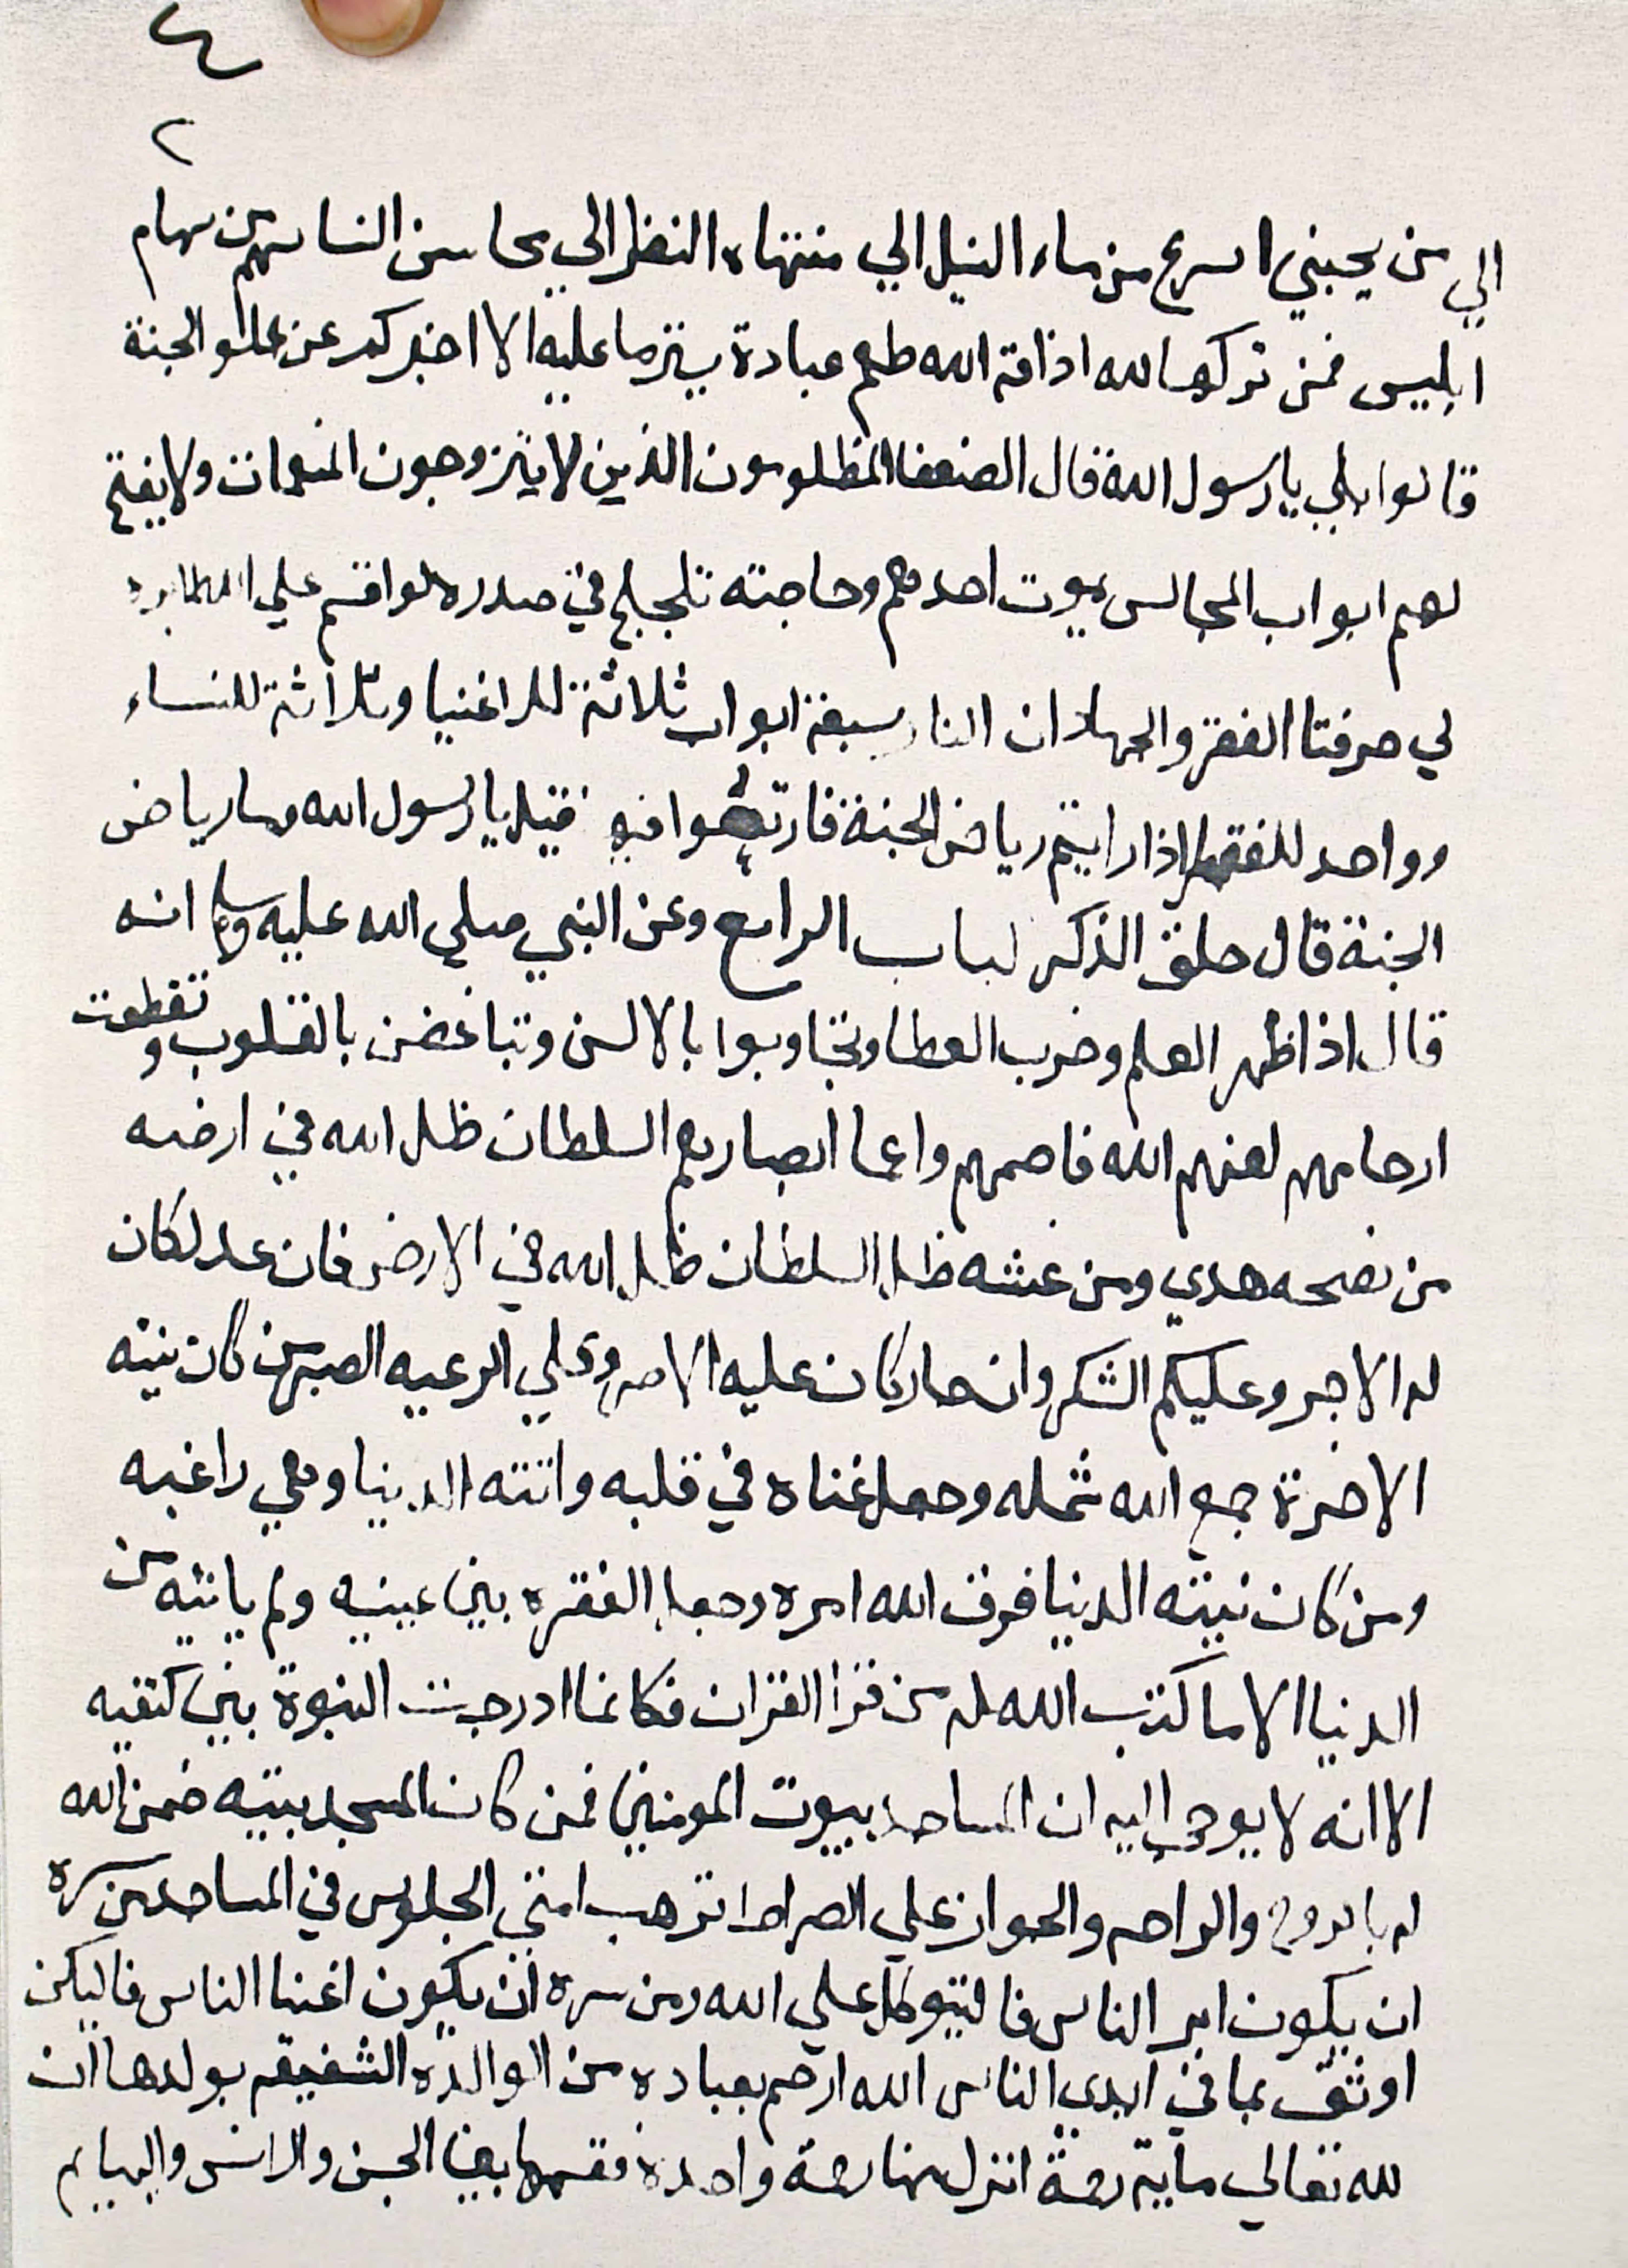 ٤
٢
الي من يحبني اسرع من ماء النيل الي منتهاه النظر الي محاسن النسا سهم من سهام
ابليس فمن تركها لله اذاقه الله طعم عبادة عليه الا اخبركم عن الجنة
قالوا بلي يا رسول الله قال الضعفا المظلومون الذين لا يتزوجون المنعمات ولا يفتح
لهم ابواب المجالس يموت احدهم وحاجته تلجلج في صدره لو اقسم علي الله لابره
لي حرفتا الفقر والجهاد ان النار سبعة ابواب ثلاثة للاغنيا وثلاثة للنساء
وواحد للفقرا اذا رايتم رياض الجنة فارتعوا فيه فقيل يا رسول الله وما رياض
الجنة قال حلق الذكر لباب الرابع وعن النبي صلي الله عليه وسلم انه
قال اذا ظهر العلم وخرب العطا وتجاوبوا بالالسن وتباغضن بالقلوب وتقطعت
ارحامهم لعنهم الله فاصمهم واعما ابصارهم السلطان ظل الله في ارضه
من نصحه هدي ومن غشه ظل السلطان ظل الله في الارض فان عدل كان
له الاجر وعليكم الشكر وان جار كان عليه الاصر وعلي الرعيه الصبر من كان نيته
الاخرة جمع الله شمله وجعل غناه في قلبه واتته الدنيا وهي راغبه
ومن كان نيته الدنيا فرق الله امره وجعل الفقره بين عينيه ولم ياتيه من
الدنيا الا ما كتب الله له من قرا القران فكانما ادرجت النبوة بين كتفيه
الا انه لا يوحي اليه ان المساجد بيوت المومنين فمن كان المسجد بيته ضمن الله
له بالروح والراحه والجواز علي الصراط ترهب امتي الجلوس في المساجد من سره
ان يكون ابر الناس فاليتوكل علي الله ومن سره ان يكون اغنا الناس فاليكن
اوثق بما في ايدي الناس الله ارحم بعباده من الوالده الشفيقه بولدها ان
لله تعالي مايه رحمة انزل منها رحمة واحدة فقسمها بين الجن والانس والبهايم